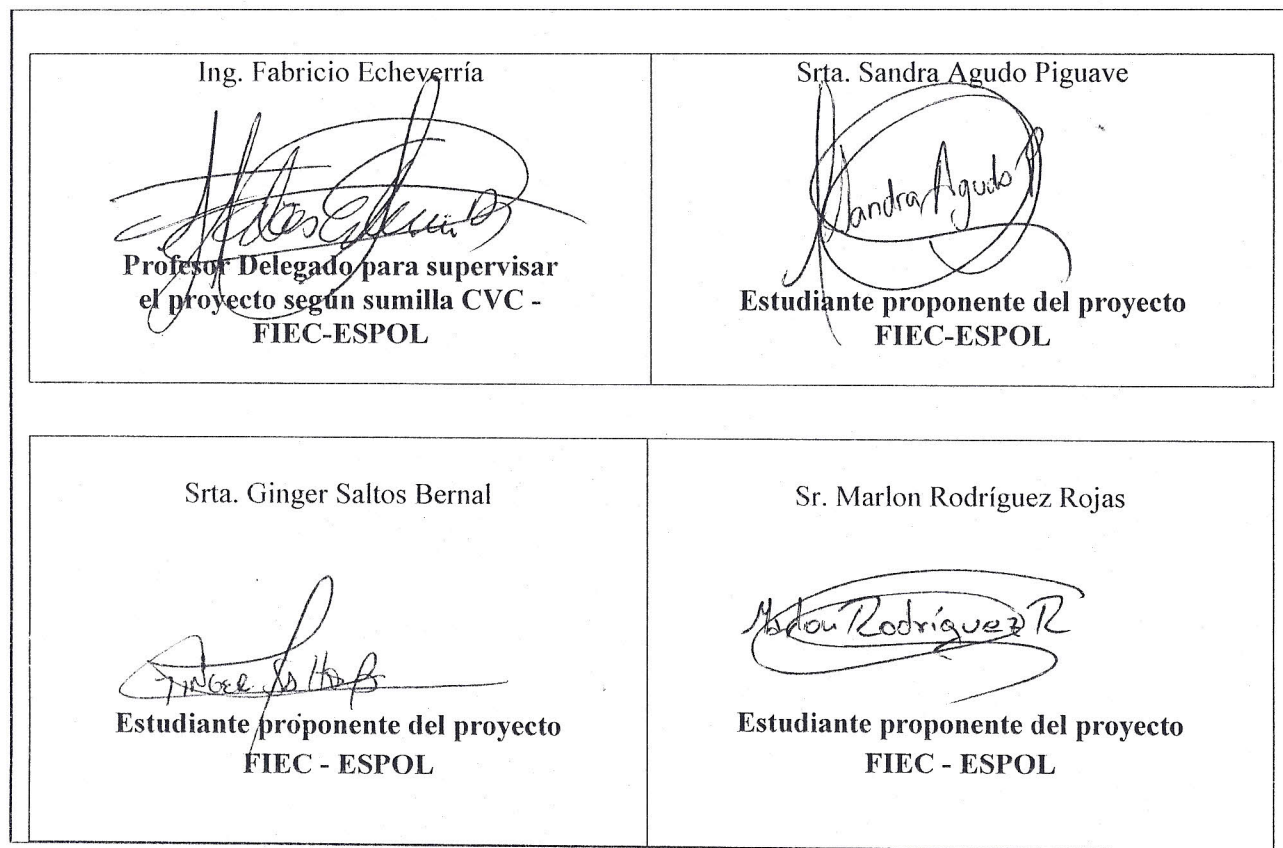 Ing. Fabricio Echeverría
Profesor Delegado para supervisar
el proyecto según sumilla CVC -
FIEC-ESPOL
Srta. Sandra Agudo Piguave
Sandra Agudo P
Estudiante proponente del proyecto
FIEC-ESPOL
Srta. Ginger Saltos Bernal
GINGER Saltos B
Estudiante proponente del proyecto
FIEC - ESPOL
Sr. Marlon Rodríguez Rojas
Marlon Rodríguez R
Estudiante proponente del proyecto
FIEC - ESPOL